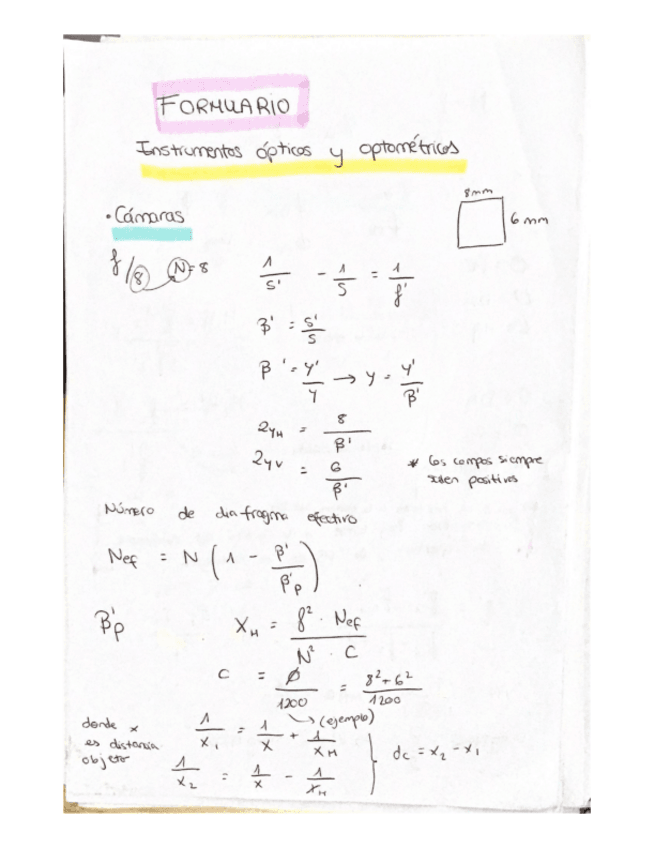 FORMULARIO
Instrumentos ópticos y optométricos
8mm
• Cámaras
6 mm
f/8 N=8
1/s' - 1/s = 1/f'
β' = s'/s
β' = y'/y → y = y'/β'
2yH = 8/β'
2yV = 6/β'
* Los campos siempre
salen positivos
Número de diafragma efectivo
Nef = N (1 - β'/β'p)
β'p
XH = f² · Nef / N² · C
C = Ø/1200 = 8²+6²/1200
↳ (ejemplo)
donde x
es distancia
objeto
1/x₁ = 1/x + 1/xH
1/x₂ = 1/x - 1/xH
dc = x₂ - x₁